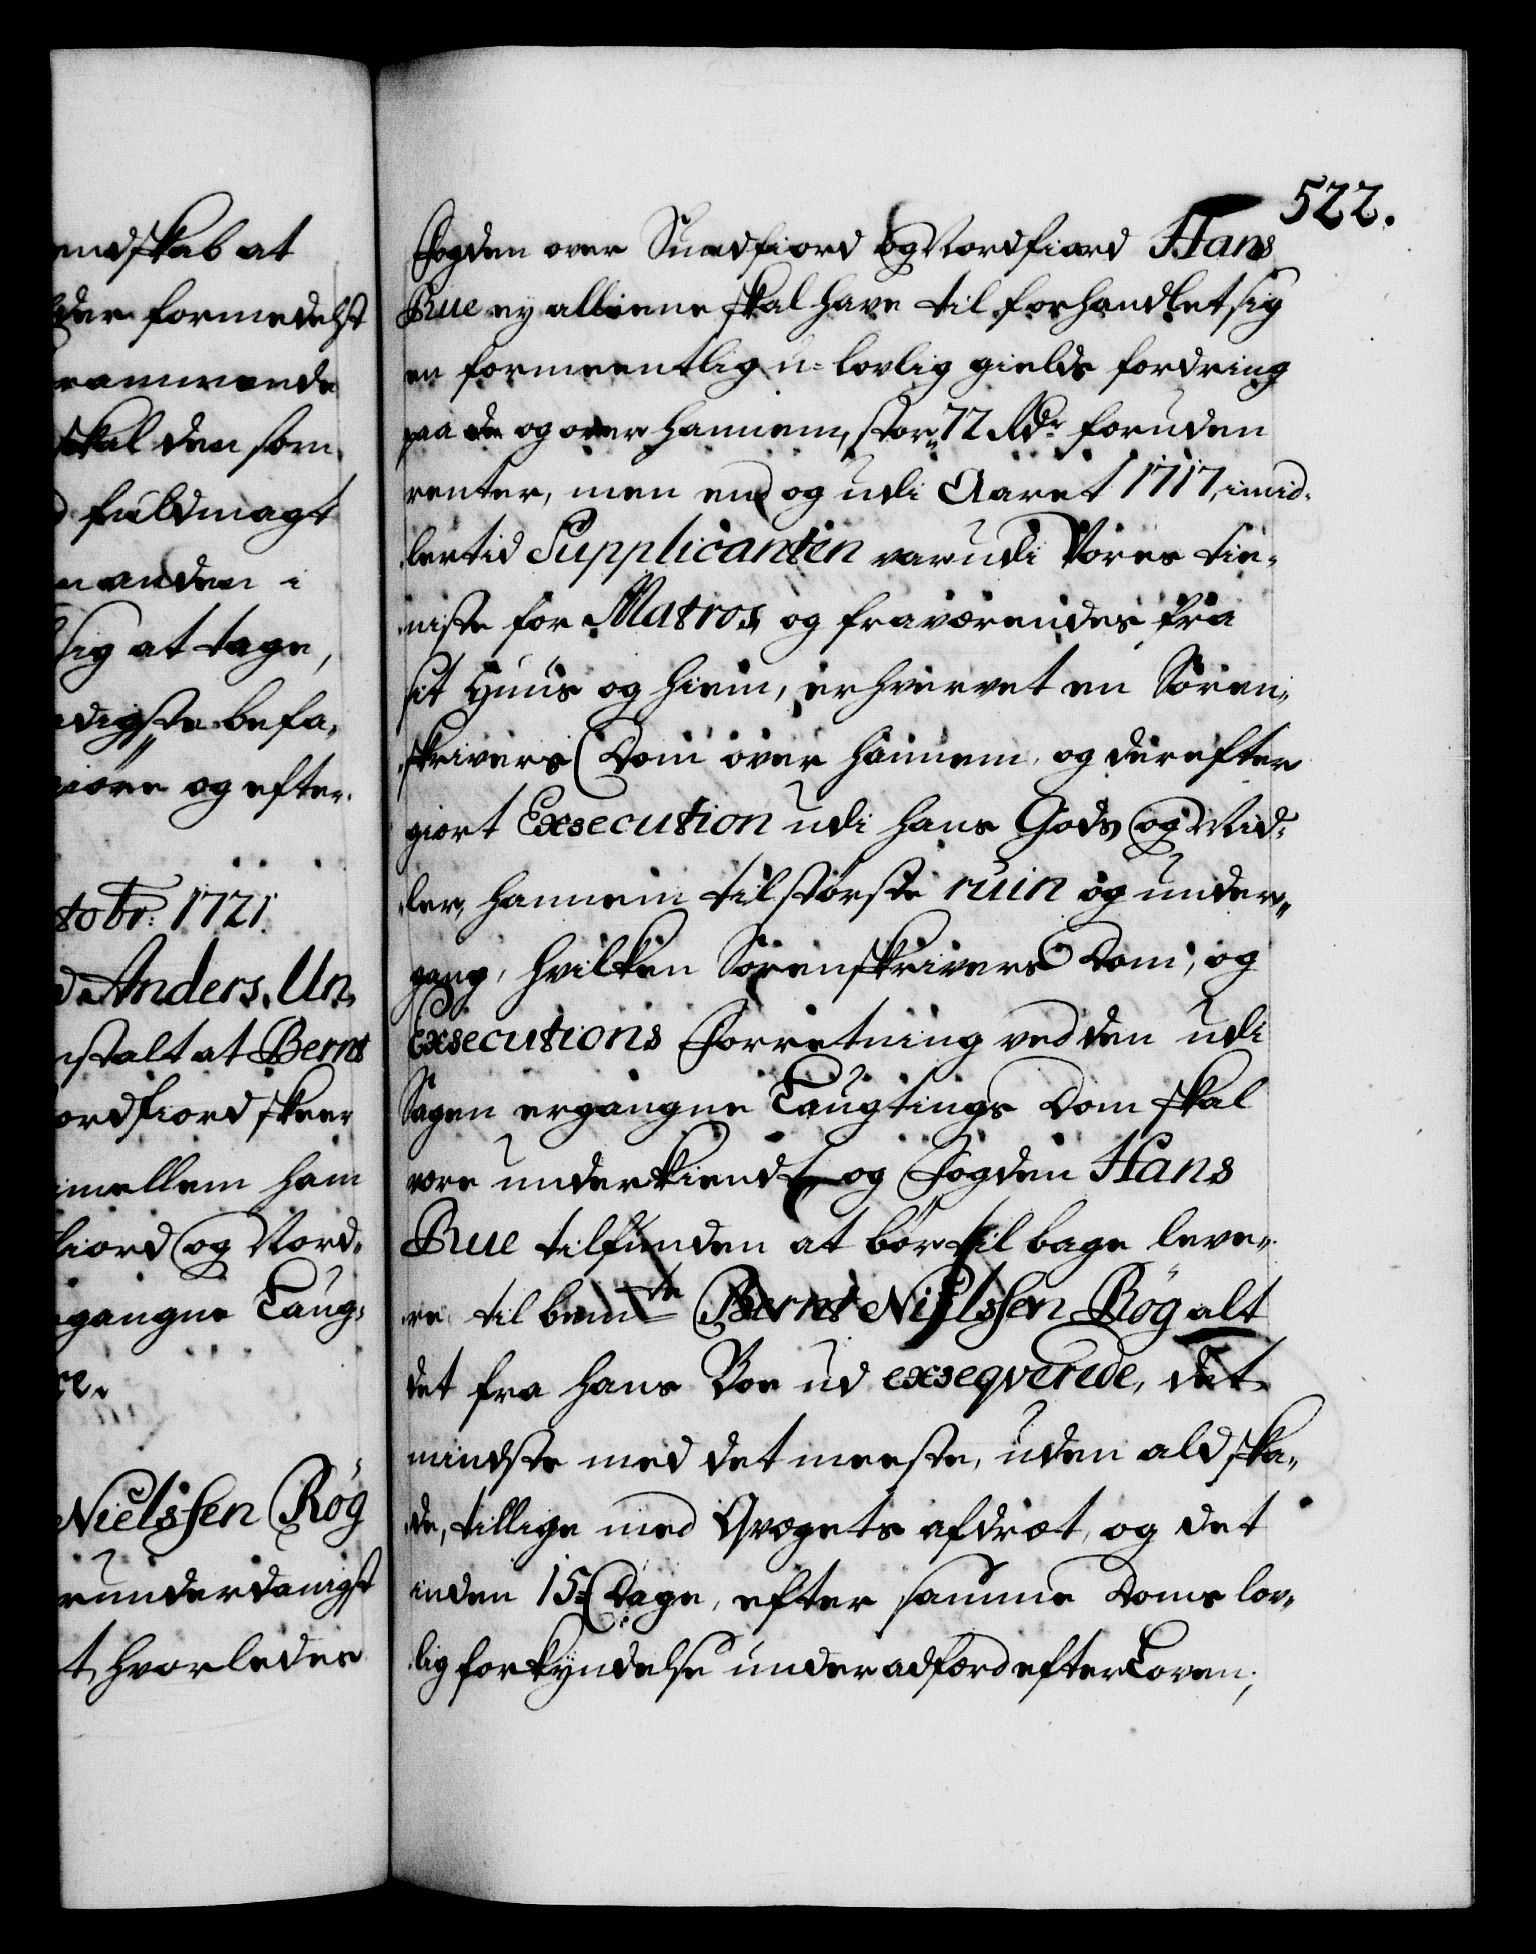 endskab at
der formedelst
rammende
skal den som
fuldmagt
anden i
sig at tage,
digste befa,
giöre og efter
tobr: 1721
Anders. Un,
stalt at Bernt
ordfiord skeer
imellem ham
fiord og Nord,
gangne Laug,
ce.
Nielssen Røg
runderdanigst
t, hvorledes
522.
Fogden over Sundfiord og Nordfiord Hans
Rue ey alleene skal have til forhandlet sig
en formeentlig u-lovlig gields fordring
paa og over hannem, stor 72 Rdr foruden
renter, men end og udi Aaret 1717, imid,
lertid Supplicanten var udi Vores tie,
niste for Matros og fraværendes fra
sit Huus og hiem, erhvervet en Soren,
skrivers Dom over hannem, og derefter
giort Exsecution udi hans Gods og Mid,
ler, hannem til største ruin og under,
gang, hvilken Sorenskrivers Dom, og
Exsecutions Forretning ved den udi
Sagen ergangne Laugtings Dom skal
være underkiendt, og Fogden Hans
Rue tilfunden at bør til bage leve,
re til bemte Bernt Nielssen Røg alt
det fra hans Boe ud exseqverede, det
mindste med det meeste, uden ald ska,
de, tillige med Qvægets afdræt, og det
inden 15 Dage, efter samme Doms lov,
lig forkyndelse under adfærd efter Loven;